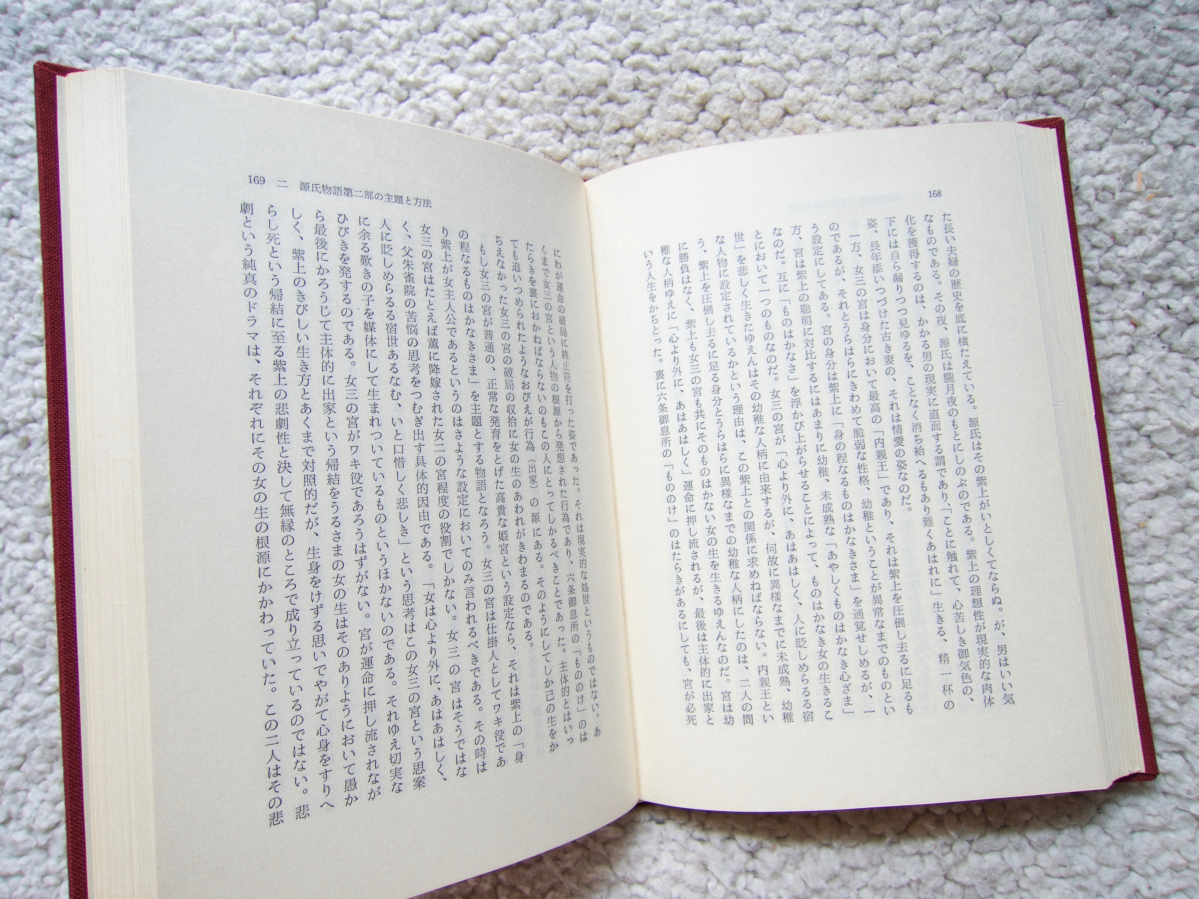 168
た長い夫婦の歴史を底に横たえている。源氏はその紫上がいとしくてならぬ。が、男はいい気
なものである。その夜、源氏は朧月夜のもとにしのぶのである。紫上の理想性が現実的な肉体
化を獲得するのは、かかる男の現実に直面する謂であり、「ことに触れて、心苦しき御気色の、
下には自ら漏りつつ見ゆるを、ことなく消ち給へるもあり難くあはれに」生きる、精一杯の
姿、長年添いつづけた古き妻の、それは情愛の姿なのだ。
一方、女三の宮は身分において最高の「内親王」であり、それは紫上を圧倒し去るに足るも
のであるが、それとうらはらにきわめて脆弱な性格、幼稚ということが異常なまでのものとい
う設定にしてある。宮の身分は紫上に「身の程なるものはかなきさま」を通覚せしめるが、一
方、宮は紫上の聡明に対比するにはあまりに幼稚、未成熟な「あやしくものはかなき心ざま」
なのだ。互に「ものはかなさ」を浮かび上がらせることによって、ものはかなき女の生きるこ
とにおいて一つのものなのだ。女三の宮が「心より外に、あはあはしく、人に貶しめらるる宿
世」を悲しく生きたゆえんはその幼稚な人柄に由来するが、何故に異様なまでに未成熟、幼稚
な人物に設定されているかという理由は、この紫上との関係に求めねばならない。内親王とい
う、紫上を圧倒し去るに足る身分とうらはらに異様なまでの幼稚な人柄にしたのは、二人の間
に勝負はなく、紫上も女三の宮も共にそのものはかない女の生を生きるゆえんなのだ。宮は幼
稚な人柄ゆえに「心より外に、あはあはしく」運命に押し流されるが、最後は主体的に出家と
いう人生をかちとった。裏に六条御息所の「もののけ」のはたらきがあるにしても、宮が必死
169 二 源氏物語第二部の主題と方法
にわが運命の破局に終止符を打った姿であった。それは現実的な処世というものではない。あ
くまで女三の宮という人物の根源から発想された行為であり、六条御息所の「もののけ」のは
たらきを裏におかねばならないのもこの人にとってしかるべきことであった。主体的とはいっ
ても追いつめられたようなおびえが行為（出家）の源にある。そのようにしてしか己の生をか
ちえなかった女三の宮の破局の収拾に女の生のあわれがきわまるのである。
もし女三の宮が普通の、正常な発育をとげた高貴な姫宮という設定なら、それは紫上の「身
の程なるものはかなきさま」を主題とする物語となろう。女三の宮は仕掛人としてワキ役であ
り紫上が女主人公であるというのはさような設定においてのみ言われるべきである。その時は
女三の宮はたとえば薫に降嫁された女二の宮程度の役割でしかない。女三の宮はそうではな
く、父朱雀院の苦悩の思考をつむぎ出す具体的因由である。「女は心より外に、あはあはしく、
人に貶しめらるる宿世あるなむ、いと口惜しく悲しき」という思考はこの女三の宮という思案
に余る歎きの子を媒体にして生まれついているものというほかないのである。それゆえ切実な
ひびきを発するのである。女三の宮がワキ役であろうはずがない。宮が運命に押し流されなが
ら最後にかろうじて主体的に出家という帰結をうるさまの女の生はそのありようにおいて愚か
しく、紫上のきびしい生き方とあくまで対照的だが、生身をけずる思いでやがて心身をすりへ
らし死という帰結に至る紫上の悲劇性と決して無縁のところで成り立っているのではない。悲
劇という純真のドラマは、それぞれにその女の生の根源にかかわっていた。この二人はその悲